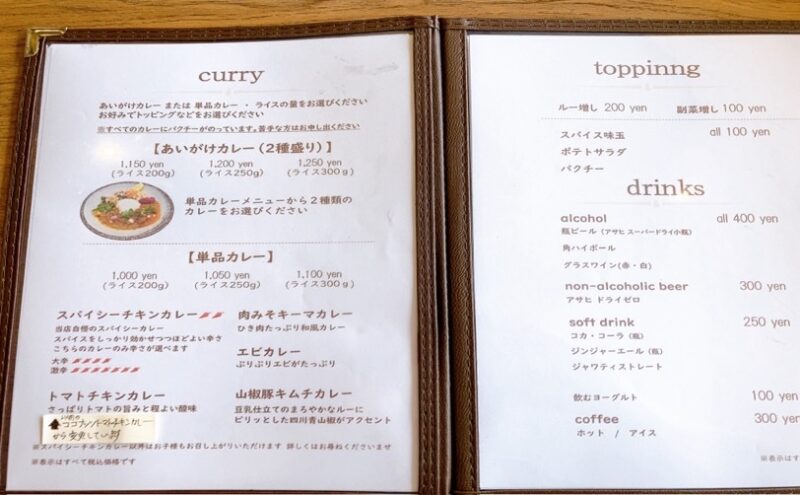 curry
あいがけカレー または 単品カレー ・ ライスの量をお選びください
お好みでトッピングなどをお選びください
※すべてのカレーにパクチーがのっています。苦手な方はお申し出ください
【あいがけカレー（2種盛り）】
1,150 yen 1,200 yen 1,250 yen
(ライス200g) (ライス250g) (ライス300g)
単品カレーメニューから2種類の
カレーをお選びください
【単品カレー】
1,000 yen 1,050 yen 1,100 yen
(ライス200g) (ライス250g) (ライス300g)
スパイシーチキンカレー
当店自慢のスパイシーカレー
スパイスをしっかり効かせつつほどよい辛さ
こちらのカレーのみ辛さが選べます
大辛
激辛
肉みそキーマカレー
ひき肉たっぷり和風カレー
エビカレー
ぷりぷりエビがたっぷり
トマトチキンカレー
さっぱりトマトの旨みと程よい酸味
ココナッツトマトチキンカレー
から変更しています
山椒豚キムチカレー
豆乳仕立てのまろやかなルーに
ピリッとした四川青山椒がアクセント
※スパイシーチキンカレー以外はお子様もお召し上がりいただけます 詳しくはお尋ねくださいませ
※表示はすべて税込価格です
toppinng
ルー増し 200 yen 副菜増し 100 yen
スパイス味玉 all 100 yen
ポテトサラダ
パクチー
drinks
alcohol all 400 yen
瓶ビール（アサヒ スーパードライ小瓶）
角ハイボール
グラスワイン(赤・白)
non-alcoholic beer 300 yen
アサヒ ドライゼロ
soft drink 250 yen
コカ・コーラ（瓶）
ジンジャーエール（瓶）
ジャワティストレート
飲むヨーグルト 100 yen
coffee 300 yen
ホット / アイス
※表示はす